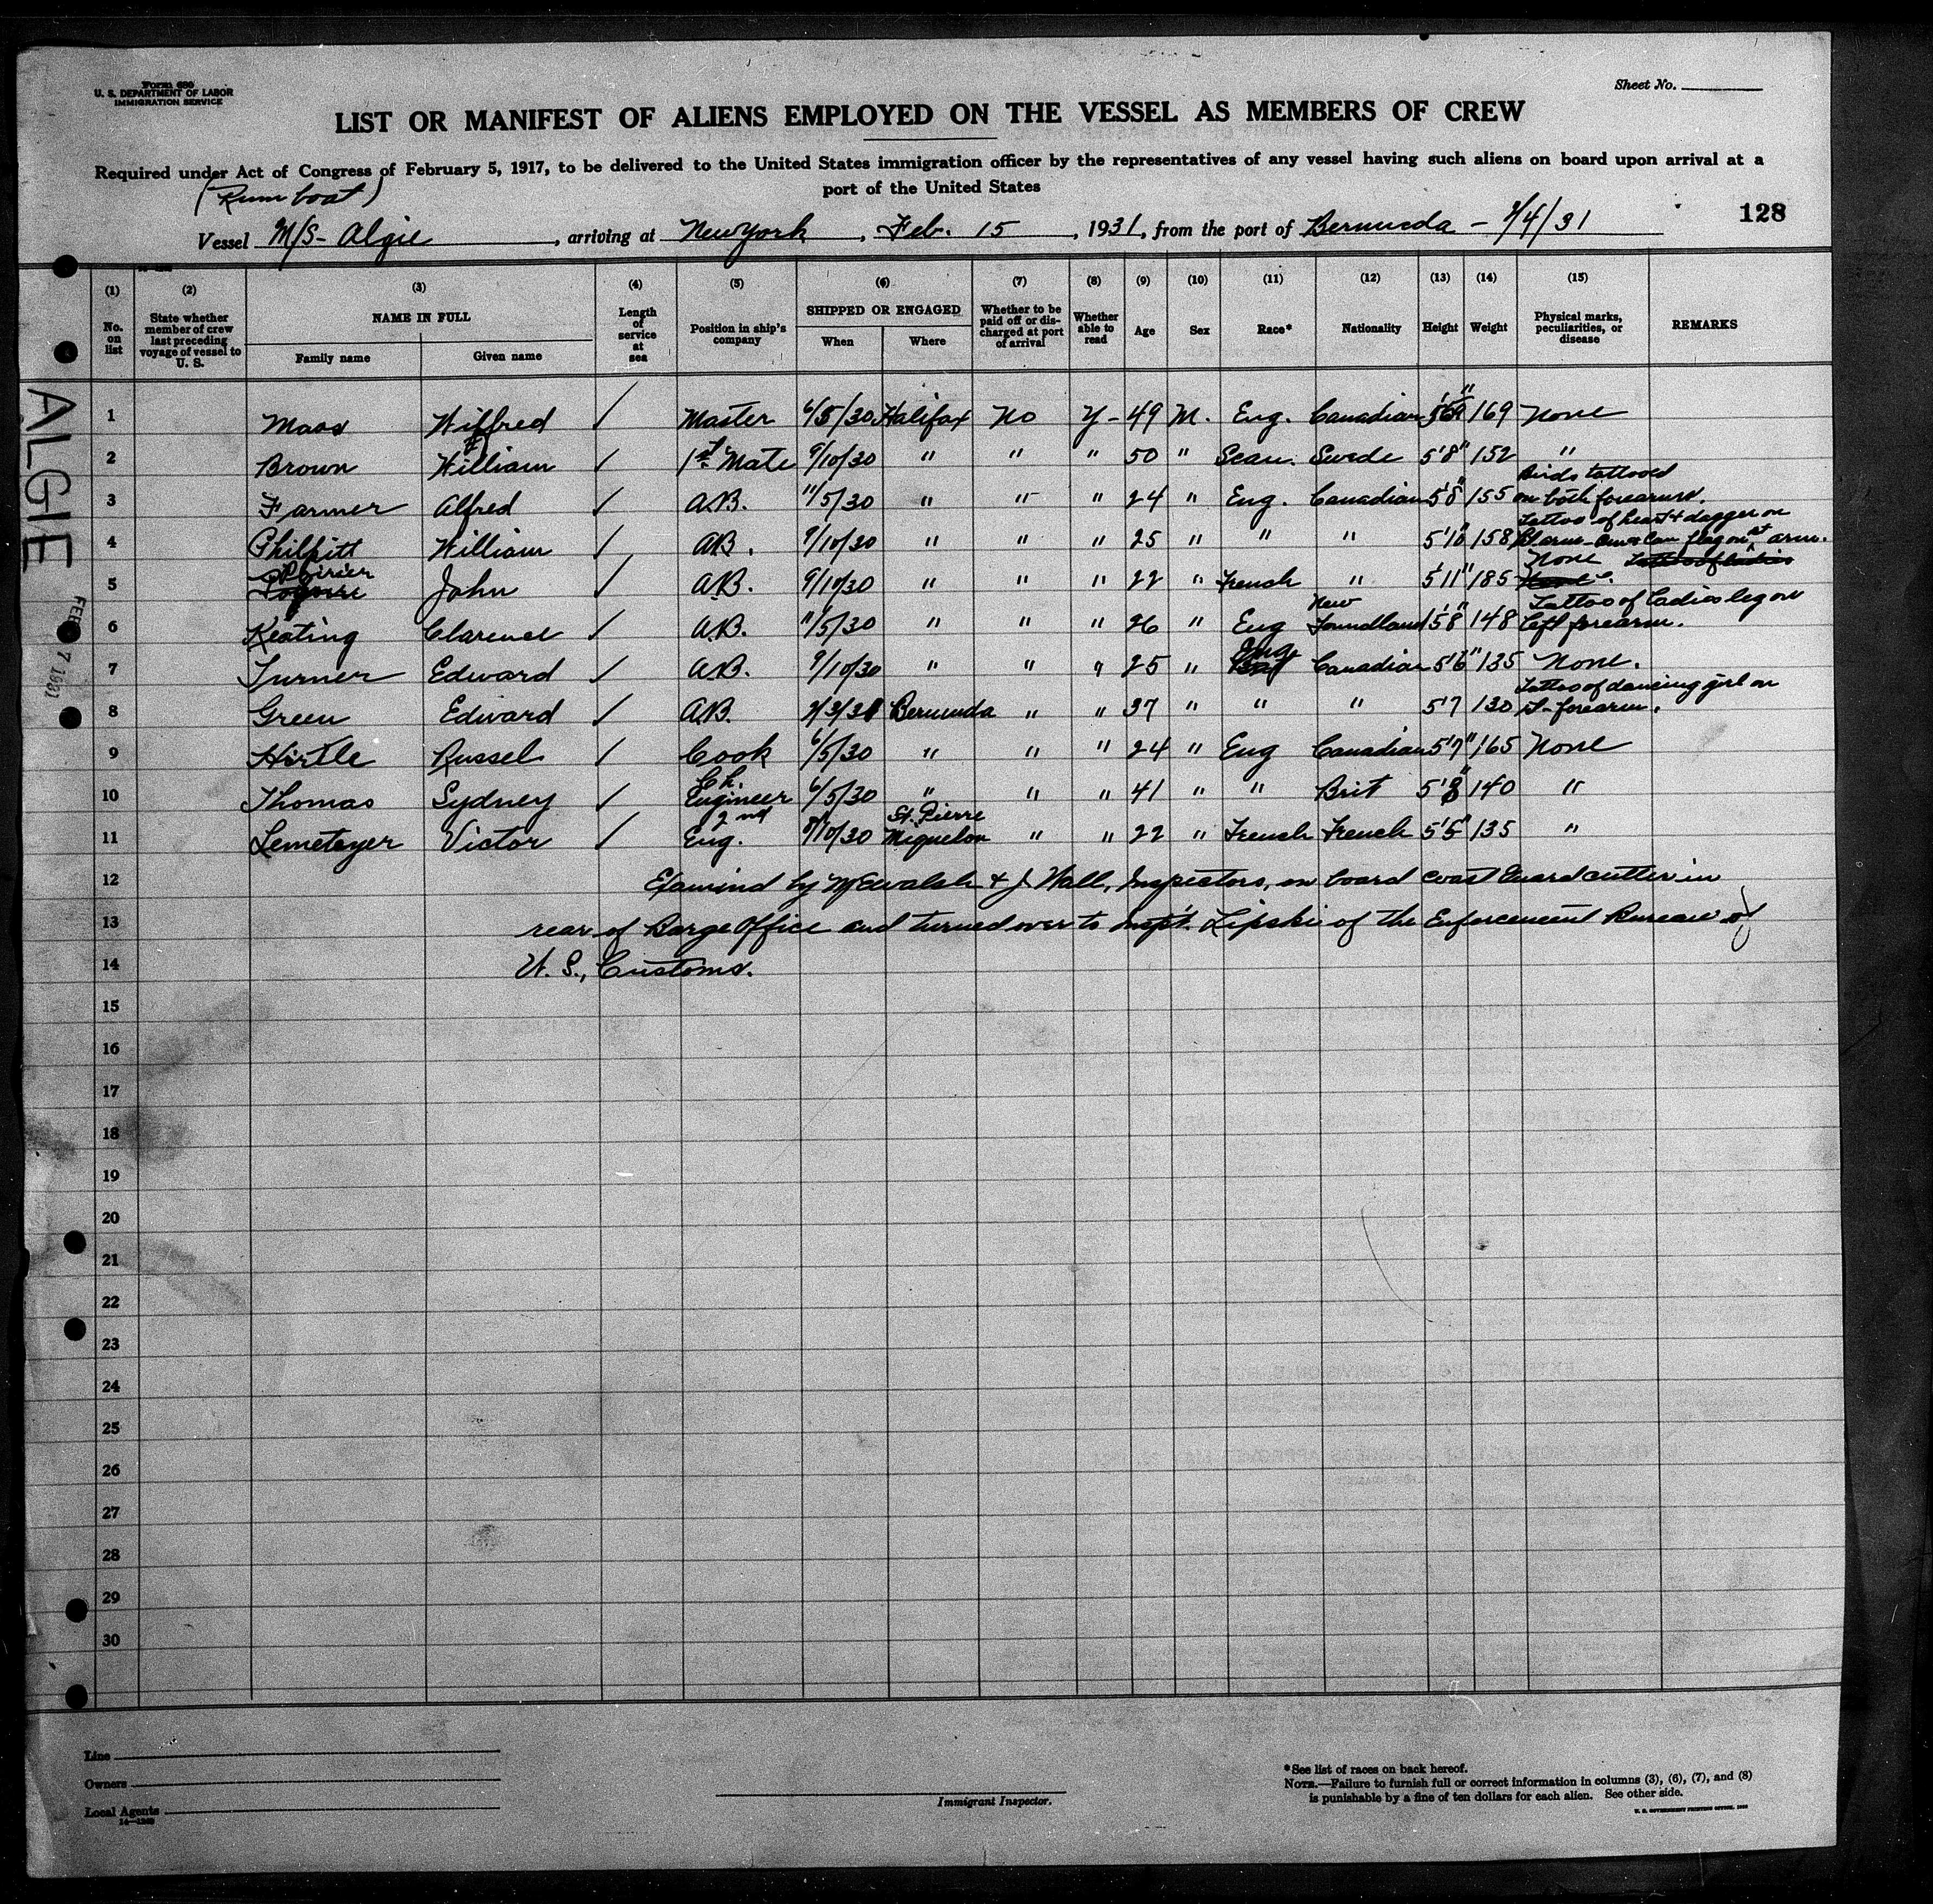 Form 680
U. S. DEPARTMENT OF LABOR
IMMIGRATION SERVICE
Sheet No.
LIST OR MANIFEST OF ALIENS EMPLOYED ON THE VESSEL AS MEMBERS OF CREW
Required under Act of Congress of February 5, 1917, to be delivered to the United States immigration officer by the representatives of any vessel having such aliens on board upon arrival at a
port of the United States
(Rum boat)
128
Vessel M/S- Algie, arriving at New York, Feb. 15, 1931, from the port of Bermuda - 2/4/31
(1) (2) (3) (4) (5) (6) (7) (8) (9) (10) (11) (12) (13) (14) (15)
No. on list
State whether member of crew last preceding voyage of vessel to U. S.
NAME IN FULL
Family name Given name
Length of service at sea
Position in ship's company
SHIPPED OR ENGAGED
When Where
Whether to be paid off or discharged at port of arrival
Whether able to read
Age Sex Race* Nationality Height Weight
Physical marks, peculiarities, or disease
REMARKS
ALGIE
FEB 7 1931
1 Mass Wilfred / Master 6/5/30 Halifax No Y- 49 M. Eng. Canadian 169 None
2 Brown William / 1st Mate 9/10/30 " " " 50 " Scan. Swede 5'8" 152 "
3 Farmer Alfred / A.B. 11/5/30 " " " 24 " Eng. Canadian 5'8" 155 Birds tattooed on both forearms.
4 Philpitt William / A.B. 9/10/30 " " " 25 " " " 5'10" 158 Tattoo of heart & dagger on arm - flag on arm.
5 Poirier John / A.B. 9/10/30 " " " 22 " French " 5'11" 185 None
6 Keating Clarence / A.B. 11/5/30 " " " 26 " Eng New Foundland 5'8" 148 Tattoo of Ladies leg on left forearm.
7 Turner Edward / A.B. 9/10/30 " " " 25 " Eng Canadian 5'6" 135 None.
8 Green Edward / A.B. 2/3/31 Bermuda " " 37 " " " 5'7 130 Tattoo of dancing girl on forearm.
9 Hirtle Russel / Cook 6/5/30 " " " 24 " Eng Canadian 5'7" 165 None
10 Thomas Sydney / Ch. Engineer 6/5/30 " " " 41 " " Brit 5'8" 140 "
11 Lemetayer Victor / 2nd Eng. 8/10/30 St. Pierre Miquelon " " 22 " French French 5'5" 135 "
12 Examind by & J Wall, Inspectors, on board coast Guard cutter in
13 rear of Barge Office and turned over to Inspt. Lipski of the Enforcement Bureau of
14 U. S., Customs.
15
16
17
18
19
20
21
22
23
24
25
26
27
28
29
30
Line
Owners
Local Agents
Immigrant Inspector.
*See list of races on back hereof.
NOTE.—Failure to furnish full or correct information in columns (3), (6), (7), and (8)
is punishable by a fine of ten dollars for each alien. See other side.